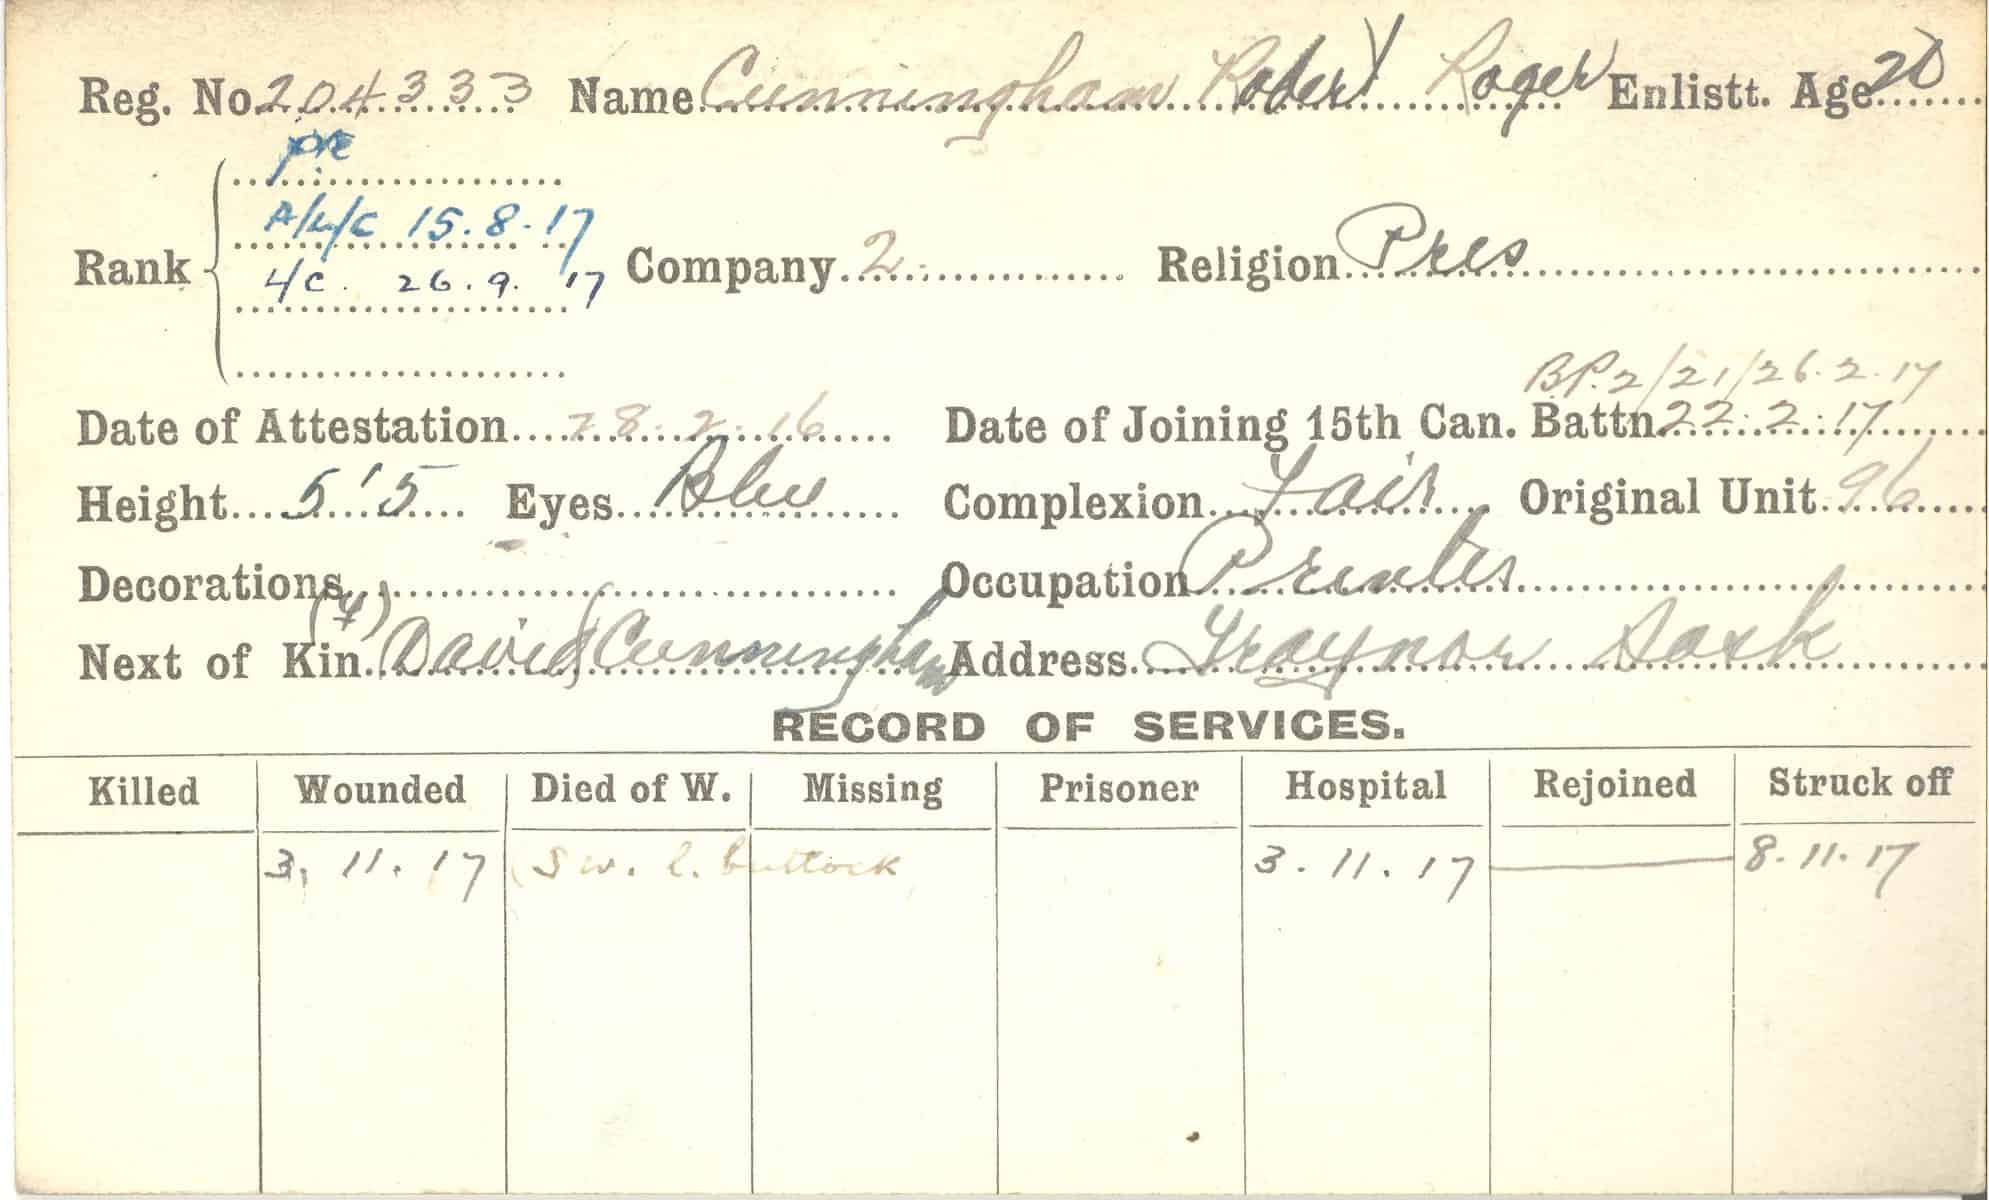 Reg. No. 204333 Name Cunningham Robert Roger Enlistt. Age 20
Pte
A/L/C 15.8.17
Rank L/C. 26.9.17 Company 2. Religion Pres
BP.2/21/26.2.17
Date of Attestation 28.2.16 Date of Joining 15th Can. Battn. 22.2.17
Height 5'5 Eyes Blue Complexion Fair Original Unit 96
Decorations Occupation Printer
Next of Kin (F) David Cunningham Address Traynor Sask
RECORD OF SERVICES.
Killed Wounded Died of W. Missing Prisoner Hospital Rejoined Struck off
3. 11. 17 S w. l. buttock 3. 11. 17 8. 11. 17